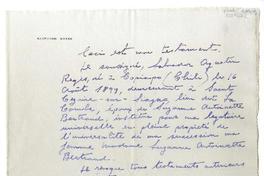 SALVADOR REYES
Ceci est mon testament.
Je soussigné, Salvador Agustin
Reyes, né à Copiapo (Chili) le 16
Août 1899, demeurant à Saint
Ognine sur lieu dit La
Combe, époux de Suzanne Antoinette
Bertrand, institue pour ma légataire
universelle en pleine propriété
de l'universalité de ma succession ma
femme Madame Suzanne Antoinette
Bertrand.
Je révoque tous testaments antérieurs